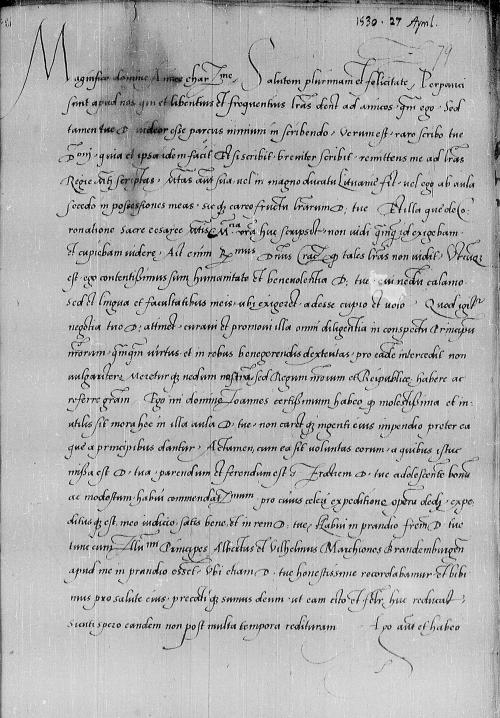 1530 · 27 April.
79
Magnifice domine Amice char^me, Salutem plurimam et felicitate, Perpauci
sunt apud nos qui et libentius et frequentius lras dent ad amicos qm ego. Sed
tamen tue D. videor esse parcus nimium in scribendo, Verum est, raro scribo tue
Doni, quia et ipsa idem facit. Et si scribit, breviter scribit, remittens me ad lras
Regie scriptas, vel in magno ducatu Lituanie sit, vel ego ab aula
secedo in possessiones meas, sic q careo fructu lrarum D. tue. Et illa que de Co-
ronatione Sacre cesaree M. huc scripsit, non vidi exigebam
et cupiebam videre. Ait enim R^mus Dnus Crac. q tales lras non vidit. Utcunq
est, ego contentissimus sum humanitate et benevolentia D. tue, cui nedum calamo
sed et lingua et facultatibus meis, ubi exigeret, adesse cupio et volo. Quod
negotia tue D. attinet, curavi et promovi illa omni diligentia in conspectu Principum
mrorum, virtus et in rebus bene gerendis dexteritas, pro eadem intercedit non
vulgariter, Meretur q nedum nostram sed Regum mrorum et Reipublice habere ac
referre gram. Ego mi domine Joannes certissimum habeo q molestissima et in-
utilis sit mora hec in illa aula D. tue, non caret q ingenti eius impendio preter ea
que a principibus dantur, Attamen, cum ea sit voluntas eorum, a quibus istuc
missa est D. tua, parendum et ferendum est. Fratrem D. tue adolescentem bonum
ac modestum habui commendat^mum pro cuius celeri expeditione operam dedi, expe-
ditus q est, meo iudicio, satis bene, et in rem D. tue. Habui in prandio frem D. tue
tunc cum Ill^mi Principes Albertus et Vilhelmus Marchiones Brandemburgen
apud me in prandio essent, Ubi etiam D. tue honestissime recordabamur et bibi-
mus pro salute eius, precati q sumus deum, ut eam cito et felr huc reducat,
Sicuti spero eandem non post multa tempora redituram Ipso aut et habeo